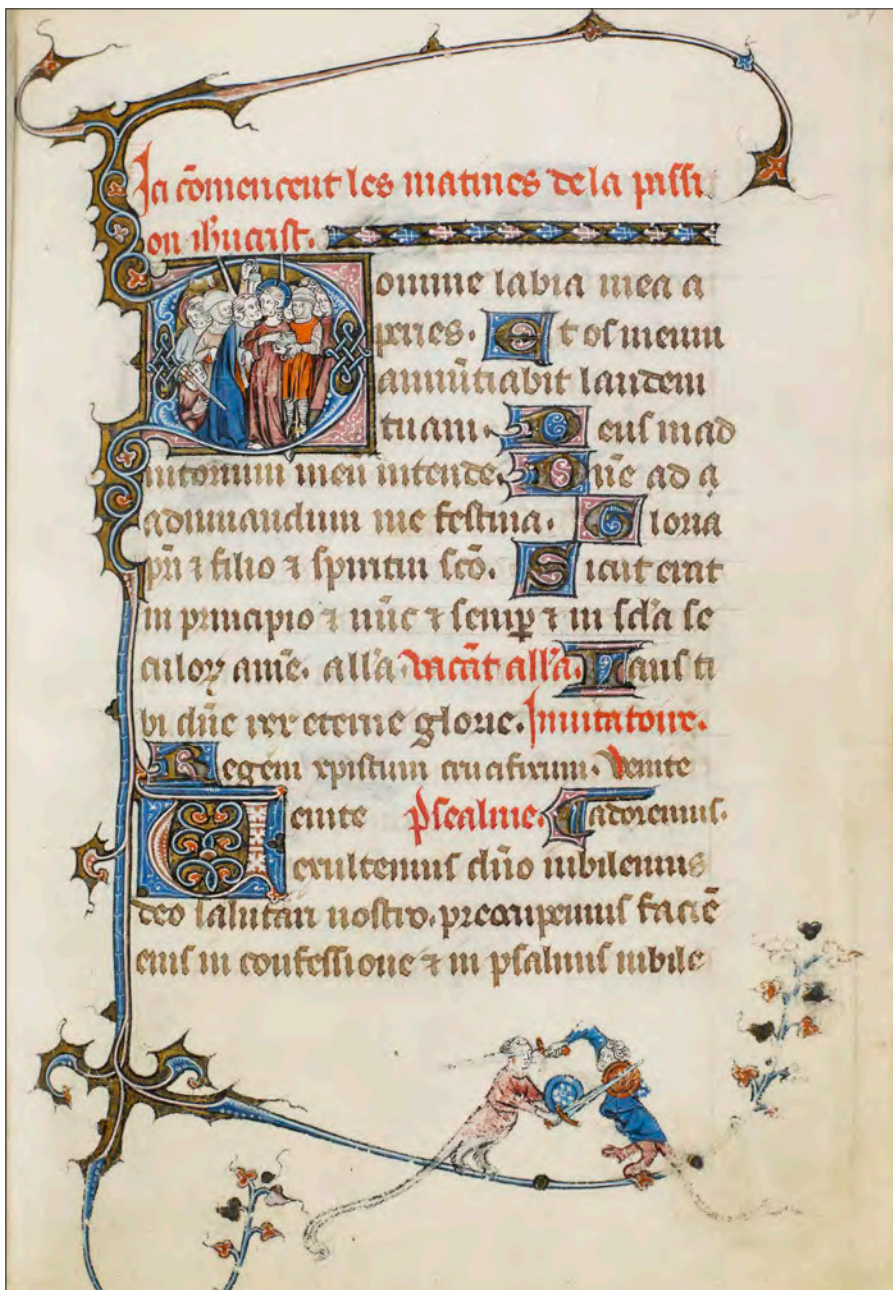 Ici cōmencent les matines de la passi
on ihucrist.
Domine labia mea a
peries. Et os meum
annūtiabit laudem
tuam. Deus in ad
iutorium meū intende. Dñe ad a
adiuuandum me festina. Gloria
pri ⁊ filio ⁊ spiritui scō. Sicut erat
in principio ⁊ nūc ⁊ semꝑ ⁊ in scła se
culoꝝ amē. all'a vacāt all'a. Laus ti
bi dñe rex eterne glorie. Inuitatoire.
Regem xpistum crucifixum. Venite
Uenite psealme. adoremus.
exultemus dño iubilemus
deo salutari nostro. preocupemus faciē
eius in confessione ⁊ in psalmis iubile